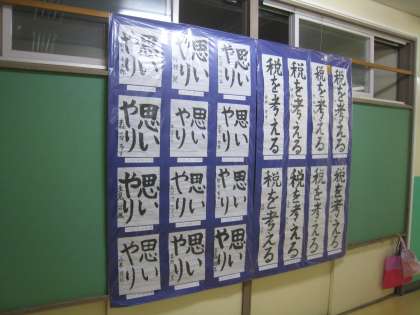 思いやり
思いやり
思いやり
思いやり
思いやり
思いやり
思いやり
思いやり
思いやり
思いやり
思いやり
思いやり
税を考える
税を考える
税を考える
税を考える
税を考える
税を考える
税を考える
税を考える